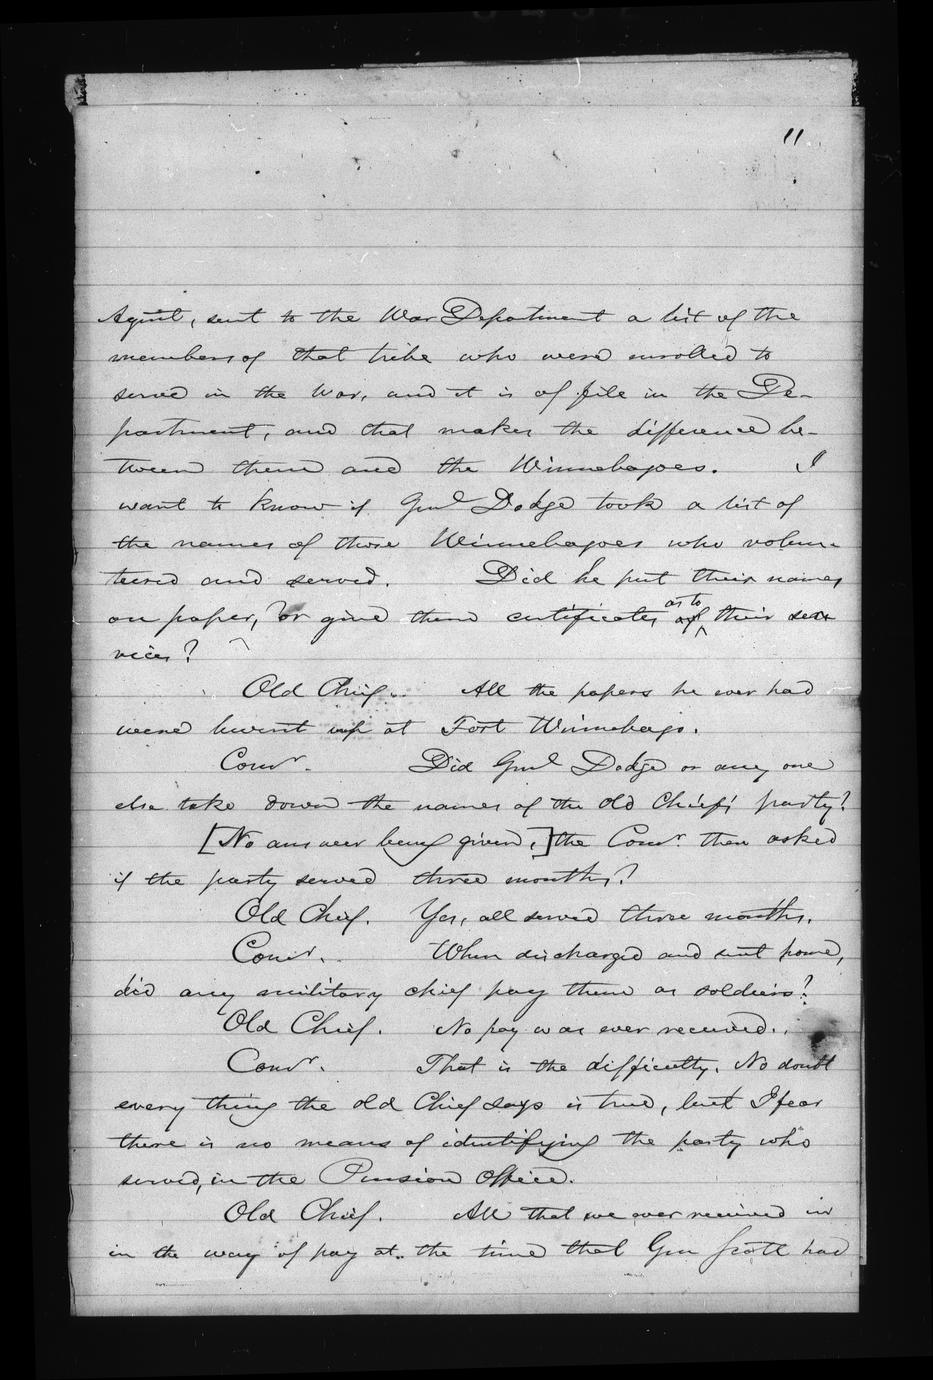 11
Agent, sent to the War Department a list of the
members of that tribe who were enrolled to
serve in the war, and it is of file in the De-
partment, and that makes the difference be-
tween them and the Winnebagoes. I
want to know if Genl Dodge took a list of
the names of those Winnebagoes who volun-
teered and served. Did he put their names
on paper, or give them certificates as to their ser-
vices?
Old Chief. All the papers he ever had
were burnt up at Fort Winnebago.
Comr. Did Genl Dodge or any one
else take down the names of the Old Chief's party?
[No answer being given,] the Comr. then asked
if the party served three months?
Old Chief. Yes, all served three months.
Comr. When discharged and sent home,
did any military chief pay them as soldiers?
Old Chief. No pay was ever received.
Comr. That is the difficulty. No doubt
every thing the old Chief says is true, but I fear
there is no means of identifying the party who
served, in the Pension Office.
Old Chief. All that we ever received in
in the way of pay at the time that Gen Scott had